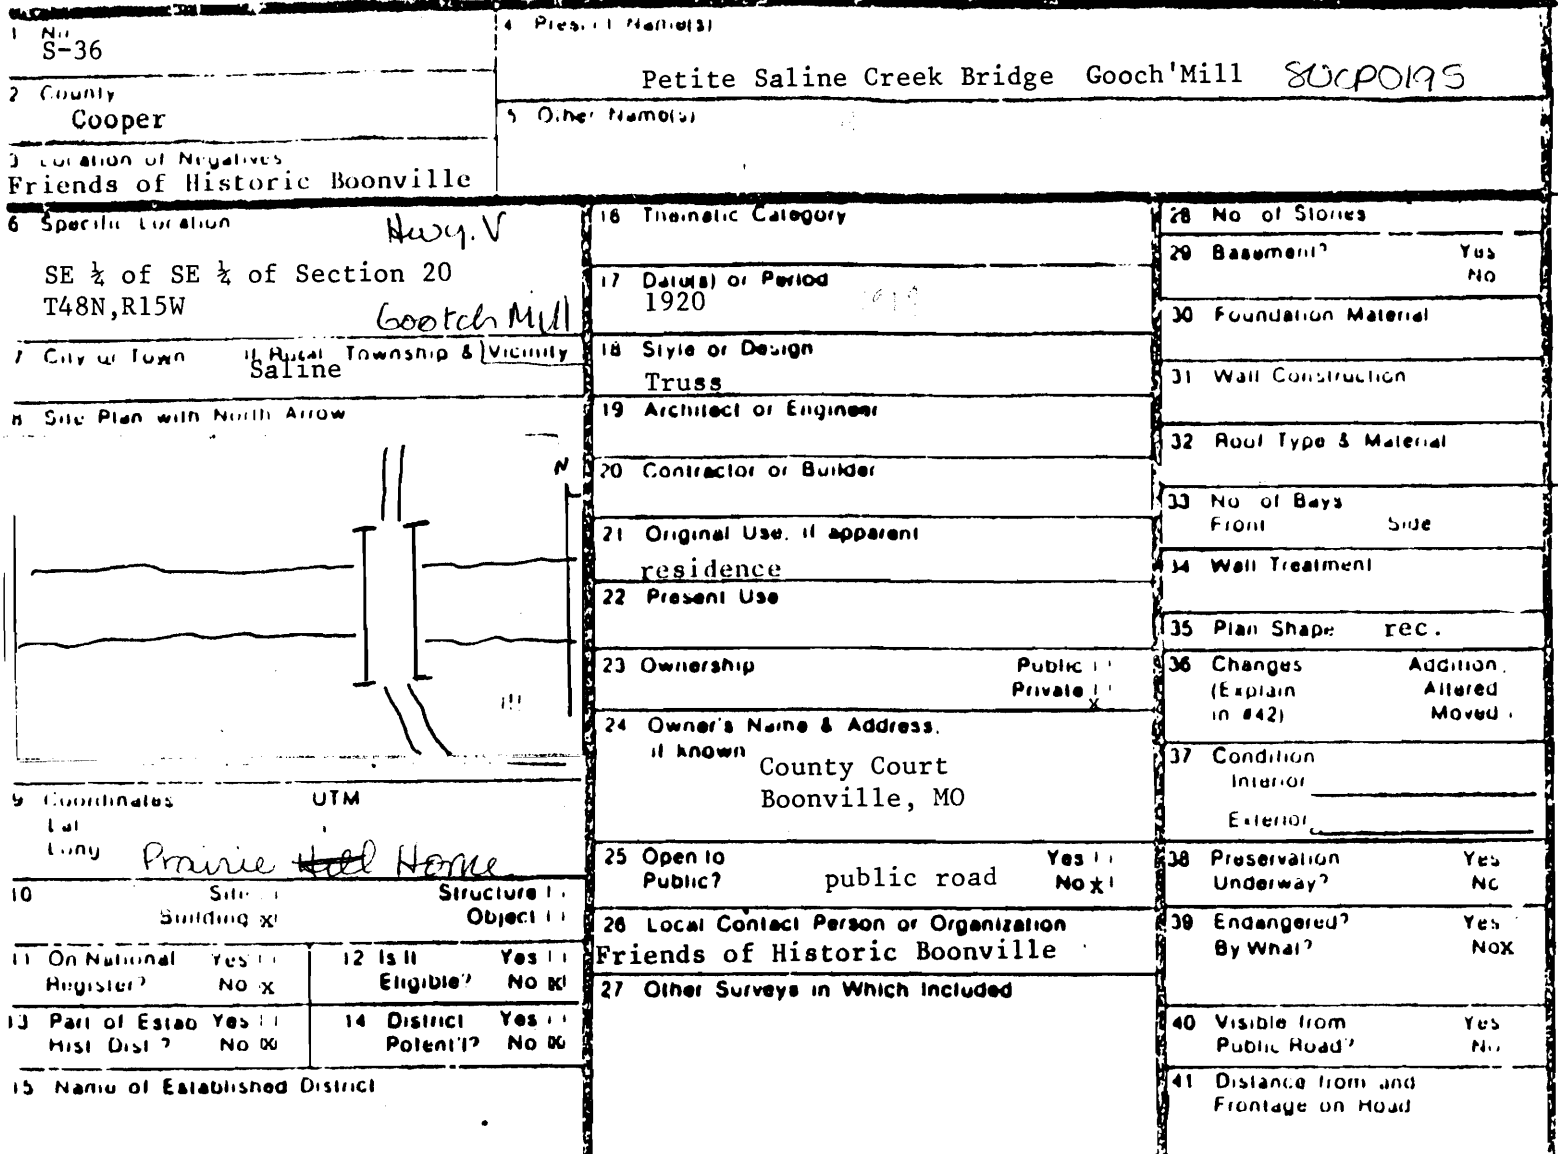 1 No
S-36
4 Present Name(s)
Petite Saline Creek Bridge Gooch'Mill SUCP0195
2 County
Cooper
5 Other Name(s)
3 Location of Negatives
Friends of Historic Boonville
6 Specific Location
Hwy. V
SE ¼ of SE ¼ of Section 20
T48N,R15W
Gootch Mill
7 City or Town If Rural Township & Vicinity
Saline
8 Site Plan with North Arrow
N
9 Coordinates UTM
Lat
Long
Prairie Hill Home
10 Site
Structure
Building x
Object
11 On National Yes
Register? No x
12 Is It Yes
Eligible? No x
13 Part of Estab Yes
Hist Dist ? No x
14 District Yes
Potent'l? No x
15 Name of Established District
16 Thematic Category
17 Date(s) or Period
1920
18 Style or Design
Truss
19 Architect or Engineer
20 Contractor or Builder
21 Original Use, if apparent
residence
22 Present Use
23 Ownership Public
Private
x
24 Owner's Name & Address,
if known
County Court
Boonville, MO
25 Open to Yes
Public? public road No x
26 Local Contact Person or Organization
Friends of Historic Boonville
27 Other Surveys in Which Included
28 No of Stories
29 Basement? Yes
No
30 Foundation Material
31 Wall Construction
32 Roof Type & Material
33 No of Bays
Front Side
34 Wall Treatment
35 Plan Shape rec.
36 Changes Addition
(Explain Altered
in #42) Moved
37 Condition
Interior
Exterior
38 Preservation Yes
Underway? No
39 Endangered? Yes
By What? Nox
40 Visible from Yes
Public Road? No
41 Distance from and
Frontage on Road